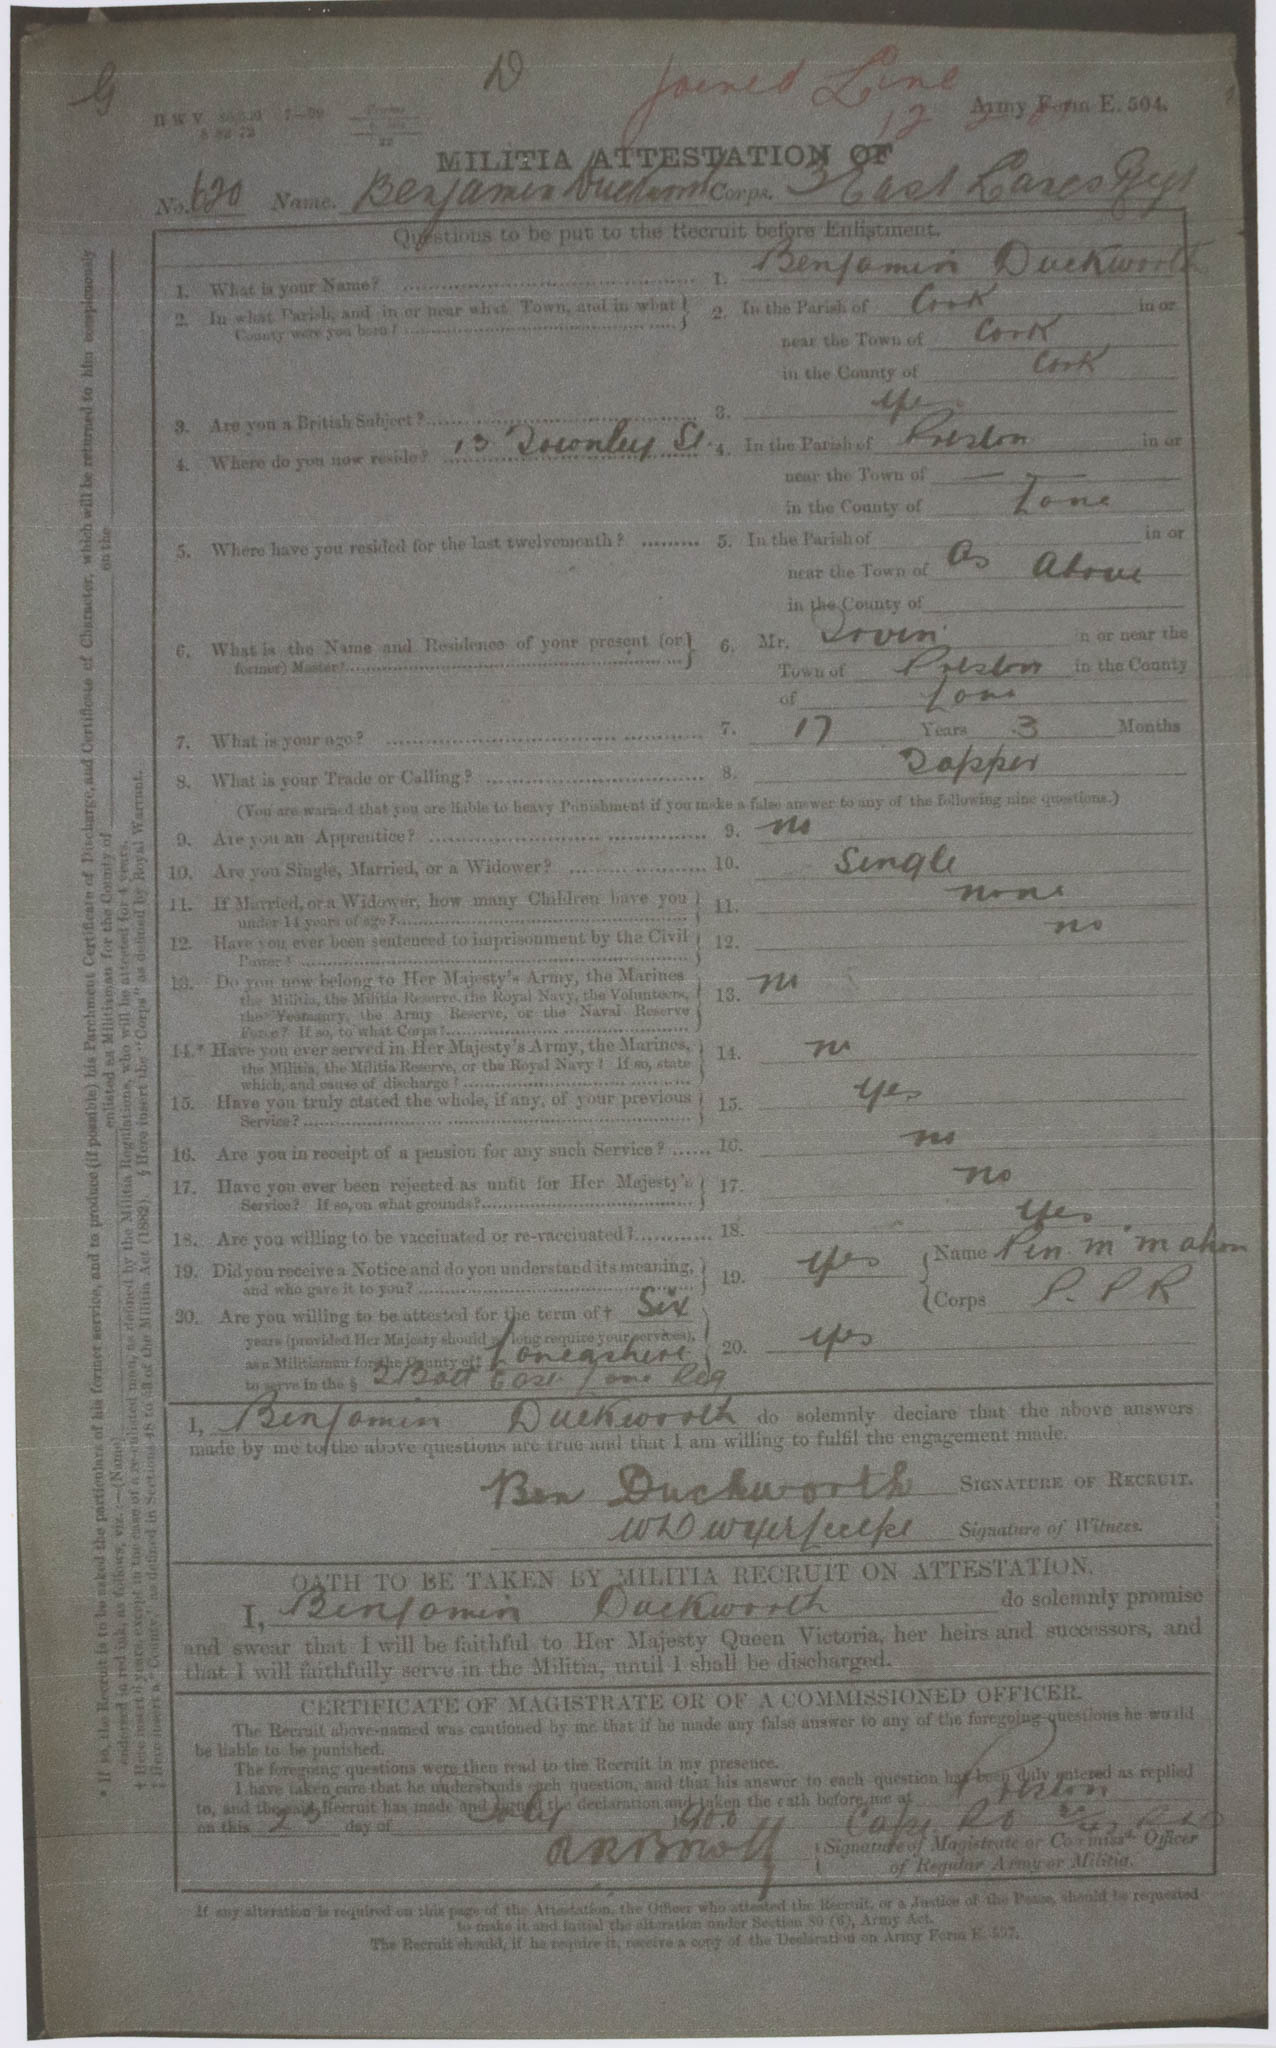 G
D
Joined Line
Army Form E. 504.
MILITIA ATTESTATION OF
No. 620 Name. Benjamin Duckworth Corps. 3 East Lancs Regt
Questions to be put to the Recruit before Enlistment.
1. What is your Name? 1. Benjamin Duckworth
2. In what Parish, and in or near what Town, and in what County were you born? 2. In the Parish of Cork in or
near the Town of Cork
in the County of Cork
3. Are you a British Subject? 3. Yes
4. Where do you now reside? 13 Townley St. 4. In the Parish of Preston in or
near the Town of — —
in the County of Lanc
5. Where have you resided for the last twelvemonth? 5. In the Parish of in or
near the Town of As Above
in the County of
6. What is the Name and Residence of your present (or former) Master? 6. Mr. in or near the
Town of Preston in the County
of Lanc
7. What is your age? 7. 17 Years 3 Months
8. What is your Trade or Calling? 8. Tapper
(You are warned that you are liable to heavy Punishment if you make a false answer to any of the following nine questions.)
9. Are you an Apprentice? 9. no
10. Are you Single, Married, or a Widower? 10. Single
11. If Married, or a Widower, how many Children have you under 14 years of age? 11. none
12. Have you ever been sentenced to imprisonment by the Civil Power? 12. no
13. Do you now belong to Her Majesty's Army, the Marines
the Militia, the Militia Reserve, the Royal Navy, the Volunteers,
the Yeomanry, the Army Reserve, or the Naval Reserve
Force? If so, to what Corps? 13. no
14.* Have you ever served in Her Majesty's Army, the Marines,
the Militia, the Militia Reserve, or the Royal Navy? If so, state
which, and cause of discharge? 14. no
15. Have you truly stated the whole, if any, of your previous
Service? 15. Yes
16. Are you in receipt of a pension for any such Service? 16. no
17. Have you ever been rejected as unfit for Her Majesty's
Service? If so, on what grounds? 17. no
18. Are you willing to be vaccinated or re-vaccinated? 18. Yes
19. Did you receive a Notice and do you understand its meaning,
and who gave it to you? 19. Yes Name Pen. McMahon
Corps
20. Are you willing to be attested for the term of † Six
years (provided Her Majesty should so long require your services),
as a Militiaman for the County of ‡ Lancashire
to serve in the § 3 Batt East Lanc Reg 20. Yes
I, Benjamin Duckworth do solemnly declare that the above answers
made by me to the above questions are true and that I am willing to fulfil the engagement made.
Ben Duckworth SIGNATURE OF RECRUIT.
Signature of Witness.
OATH TO BE TAKEN BY MILITIA RECRUIT ON ATTESTATION.
I, Benjamin Duckworth do solemnly promise
and swear that I will be faithful to Her Majesty Queen Victoria, her heirs and successors, and
that I will faithfully serve in the Militia, until I shall be discharged.
CERTIFICATE OF MAGISTRATE OR OF A COMMISSIONED OFFICER.
The Recruit above-named was cautioned by me that if he made any false answer to any of the foregoing questions he would
be liable to be punished.
The foregoing questions were then read to the Recruit in my presence.
I have taken care that he understands each question, and that his answer to each question has been duly entered as replied
to, and the said Recruit has made and signed the declaration and taken the oath before me at Preston
on this 23 day of July 1900
Signature of Magistrate or Commissd. Officer
of Regular Army or Militia.
If any alteration is required on this page of the Attestation, the Officer who attested the Recruit, or a Justice of the Peace, should be requested
to make it and initial the alteration under Section 80 (6), Army Act.
The Recruit should, if he require it, receive a copy of the Declaration on Army Form E. 507.
* If so, the Recruit is to be asked the particulars of his former service, and to produce (if possible) his Parchment Certificate of Discharge, and Certificate of Character, which will be returned to him conspicuously
endorsed in red ink, as follows, viz.:—(Name) enlisted as Militiaman for the County of on the
† Here insert 6 years, except in the case of a re-enlisted man, as defined by the Militia Regulations, who will be attested for 4 years.
‡ Here insert a "County," as defined in Sections 48 to 53 of the Militia Act (1882). § Here insert the "Corps" as defined by Royal Warrant.